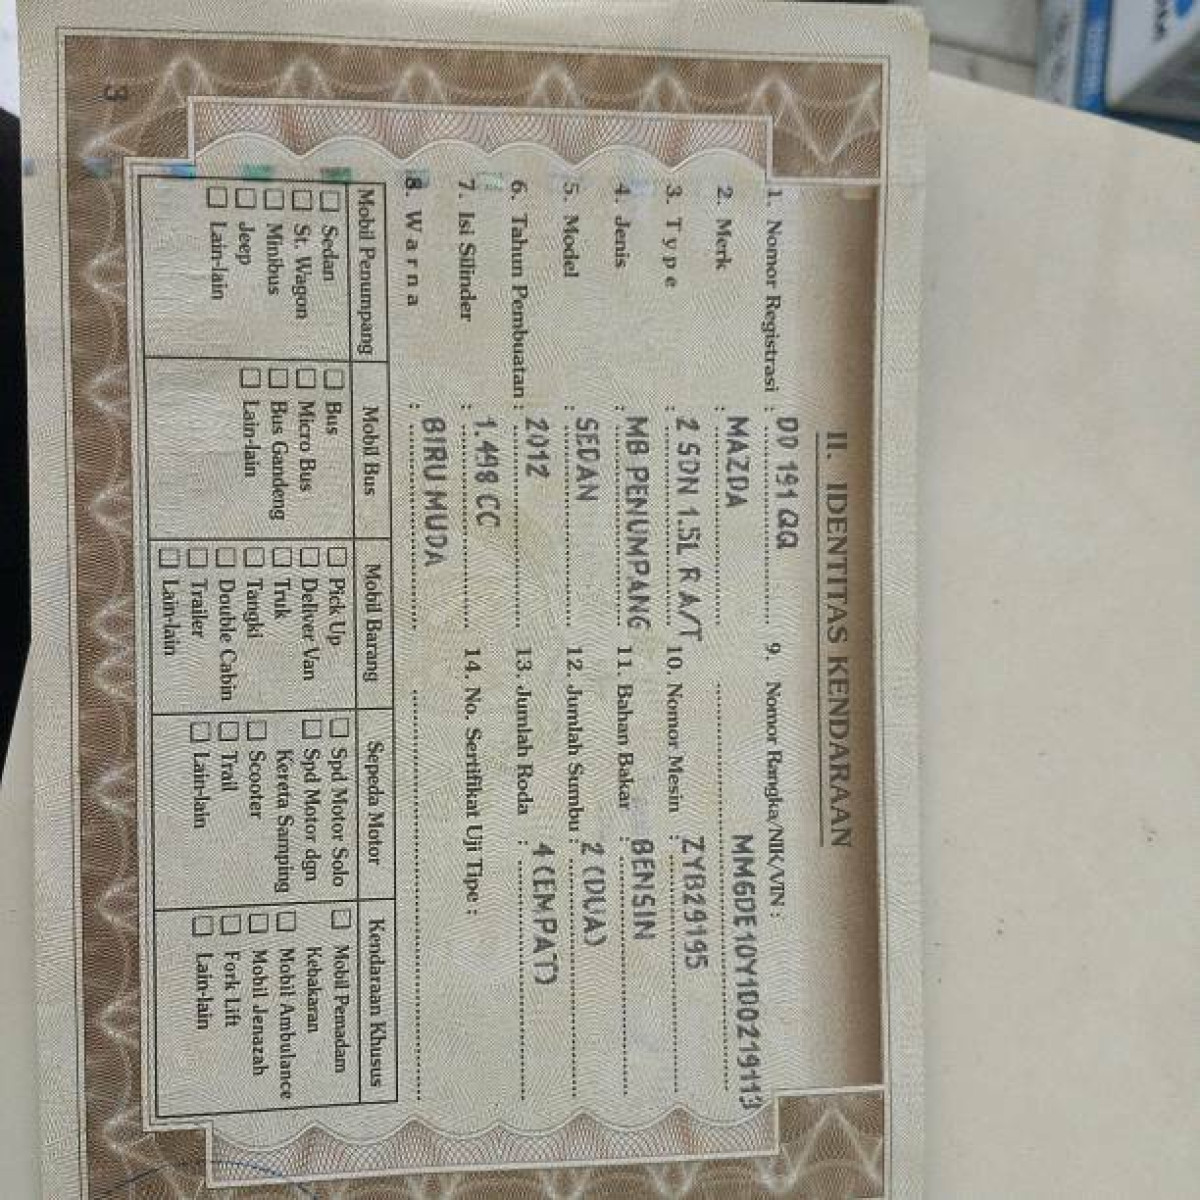 II. IDENTITAS KENDARAAN
1. Nomor Registrasi : DD 191 QQ
2. Merk : MAZDA
3. Type : 2 SDN 1.5L R A/T
4. Jenis : MB PENUMPANG
5. Model : SEDAN
6. Tahun Pembuatan : 2012
7. Isi Silinder : 1.498 CC
8. Warna : BIRU MUDA
9. Nomor Rangka/NIK/VIN :
MM6DE10Y1D0219113
10. Nomor Mesin : ZYB29195
11. Bahan Bakar : BENSIN
12. Jumlah Sumbu : 2 (DUA)
13. Jumlah Roda : 4 (EMPAT)
14. No. Sertifikat Uji Tipe :
Mobil Penumpang
Sedan
St. Wagon
Minibus
Jeep
Lain-lain
Mobil Bus
Bus
Micro Bus
Bus Gandeng
Lain-lain
Mobil Barang
Pick Up
Deliver Van
Truk
Tangki
Double Cabin
Trailer
Lain-lain
Sepeda Motor
Spd Motor Solo
Spd Motor dgn
Kereta Samping
Scooter
Trail
Lain-lain
Kendaraan Khusus
Mobil Pemadam
Kebakaran
Mobil Ambulance
Mobil Jenazah
Fork Lift
Lain-lain
3